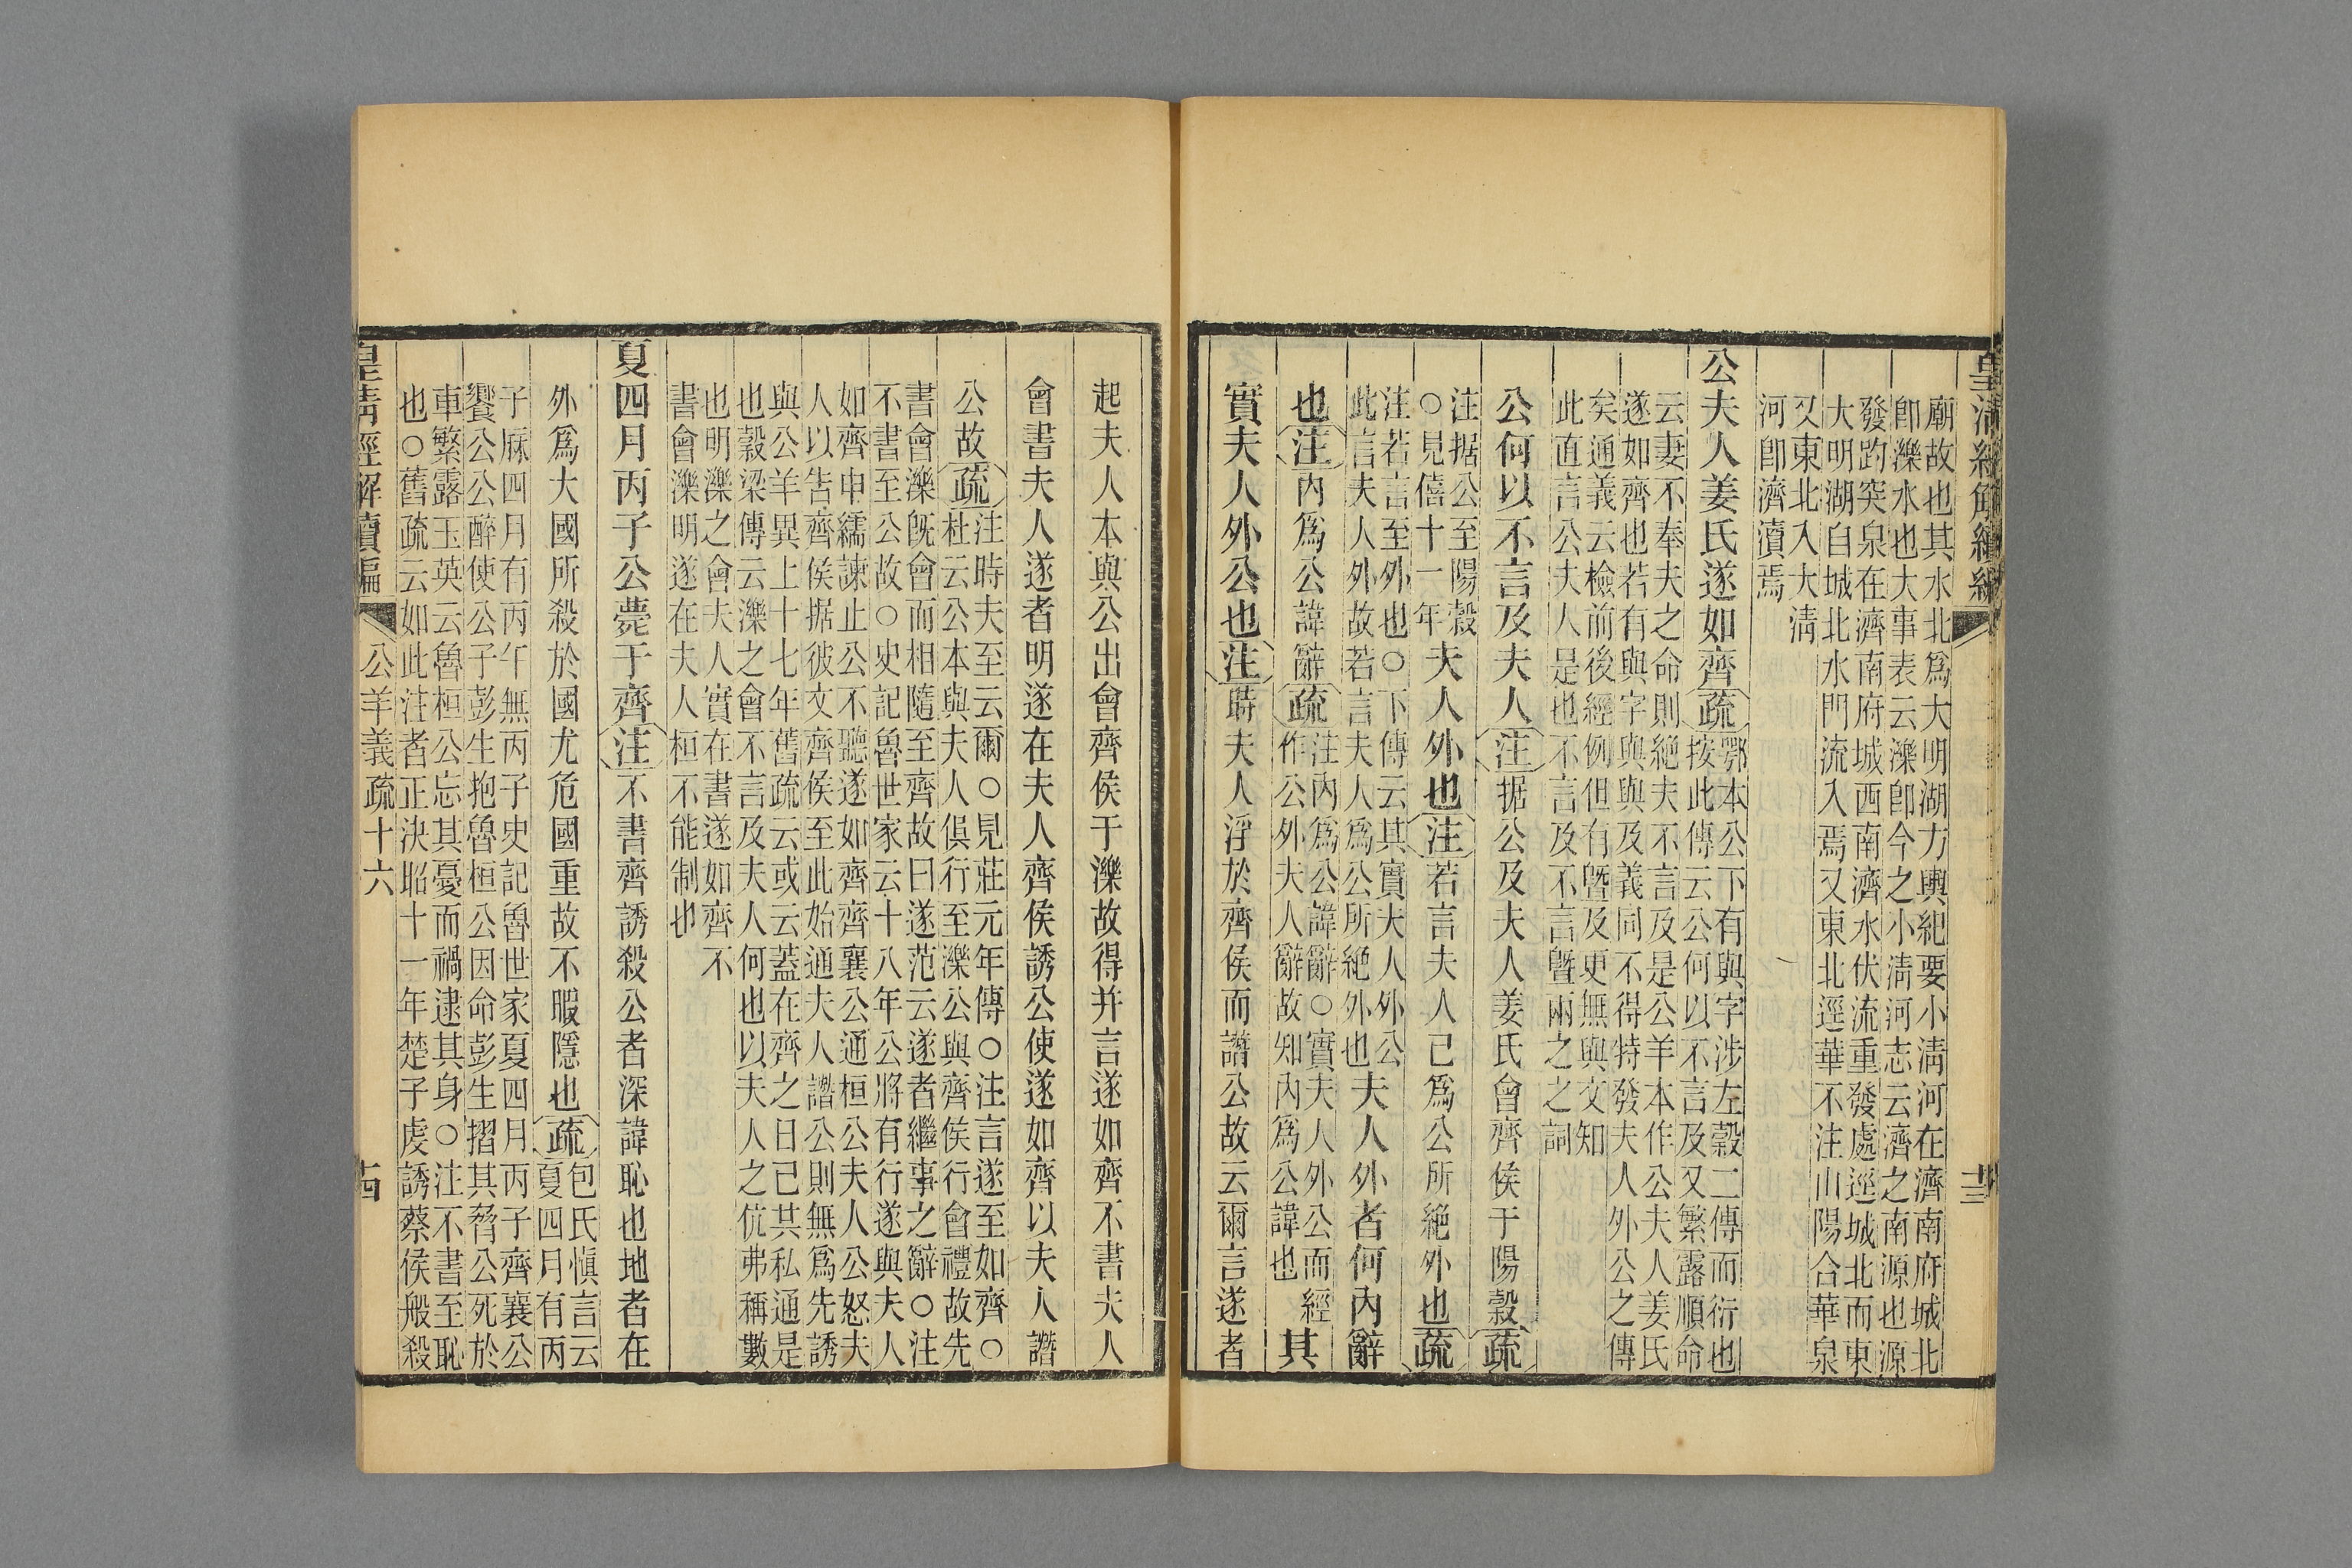 皇清經解續編
十三
廟故也其水北爲大明湖方輿紀要小淸河在濟南府城北
卽濼水也大事表云濼卽今之小淸河志云濟之南源也源
發趵突泉在濟南府城西南濟水伏流重發處逕城北而東
大明湖自城北水門流入焉又東北逕華不注山陽合華泉
又東北入大淸
河卽濟瀆焉
公夫人姜氏遂如齊疏
鄂本公下有與字涉左穀二傳而衍也
按此傳云公何以不言及又繁露順命
云妻不奉夫之命則絶夫不言及是公羊本作公夫人姜氏
遂如齊也若有與字與與及義同不得特發夫人外公之傳
矣通義云檢前後經例但有曁及更無與文知
此直言公夫人是也不言及不言曁兩之之詞
公何以不言及夫人注据公及夫人姜氏會齊侯于陽穀疏
注据公至陽穀
○見僖十一年
夫人外也注若言夫人已爲公所絶外也疏
注若言至外也○下傳云其實夫人外公
此言夫人外故若言夫人爲公所絶外也
夫人外者何內辭
也注內爲公諱辭疏
注內爲公諱辭○實夫人外公而經
作公外夫人辭故知內爲公諱也
其
實夫人外公也注時夫人淫於齊侯而譖公故云爾言遂者
起夫人本與公出會齊侯于濼故得并言遂如齊不書夫人
會書夫人遂者明遂在夫人齊侯誘公使遂如齊以夫人譖
公故疏
注時夫至云爾○見莊元年傳○注言遂至如齊○
杜云公本與夫人俱行至濼公與齊侯行會禮故先
書會濼旣會而相隨至齊故曰遂范云遂者繼事之辭○注
不書至公故○史記魯世家云十八年公將有行遂與夫人
如齊申繻諫止公不聽遂如齊齊襄公通桓公夫人公怒夫
人以告齊侯据彼文齊侯至此始通夫人譖公則無爲先誘
與公羊異上十七年舊疏云或云蓋在齊之日已其私通是
也穀梁傳云濼之會不言及夫人何也以夫人之伉弗稱數
也明濼之會夫人實在書遂如齊不
書會濼明遂在夫人桓不能制也
夏四月丙子公薨于齊注不書齊誘殺公者深諱恥也地者在
外爲大國所殺於國尤危國重故不暇隱也疏
包氏愼言云
夏四月有丙
子厤四月有丙午無丙子史記魯世家夏四月丙子齊襄公
饗公公醉使公子彭生抱魯桓公因命彭生摺其脅公死於
車繁露玉英云魯桓公忘其憂而禍逮其身○注不書至恥
也○舊疏云如此注者正決昭十一年楚子虔誘蔡侯般殺
皇淸經解續編
公羊義疏十六
十四